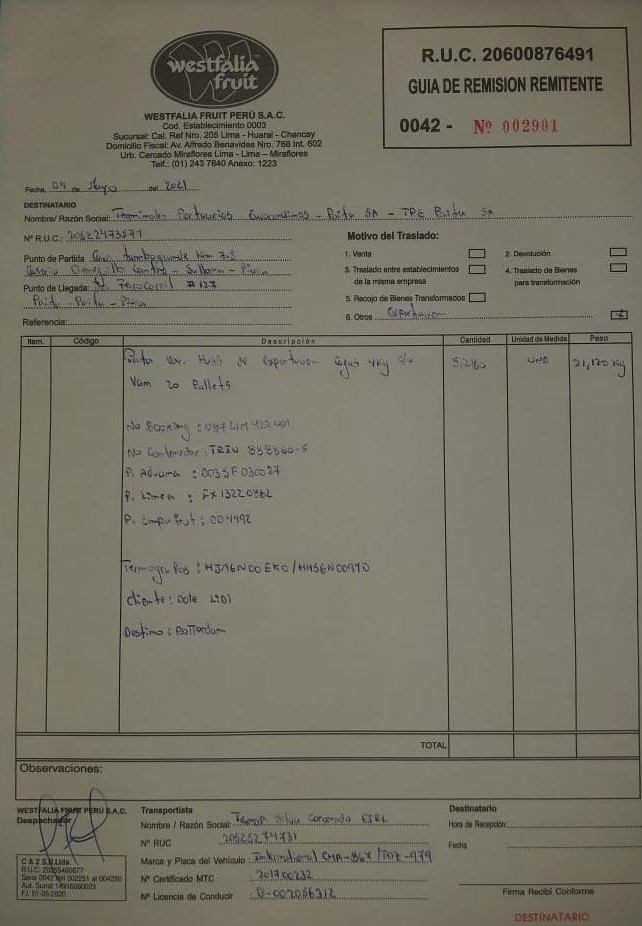 westfalia
fruit
WESTFALIA FRUIT PERÚ S.A.C.
Cod. Establecimiento 0003
Sucursal: Cal. Ref Nro. 205 Lima - Huaral - Chancay
Domicilio Fiscal: Av. Alfredo Benavides Nro. 768 Int. 602
Urb. Cercado Miraflores Lima - Lima – Miraflores
Telf.: (01) 243 7840 Anexo: 1223
R.U.C. 20600876491
GUIA DE REMISION REMITENTE
0042 - Nº 002901
Fecha, 04 de Mayo del 2021
DESTINATARIO
Nombre/ Razón Social: Terminales Portuarios Euroandinos - Paita SA - TPE Paita SA
Nº R.U.C.: 20522473571
Punto de Partida
- Sullana - Piura
Punto de Llegada: #127
Paita - Paita - Piura
Referencia:
Motivo del Traslado:
1. Venta
2. Devolución
3. Traslado entre establecimientos
de la misma empresa
4. Traslado de Bienes
para transformación
5. Recojo de Bienes Transformados
6. Otros Exportacion
Item. Código Descripción Cantidad Unidad de Medida Peso
Palta Var. Hass de Exportacion Cajas 4Kg c/u 5,280 UND 21,120 Kg
Van 20 Pallets
No Booking :
No Contenedor : TRIU
P. Aduana : 0035F030027
P. Linea : FX13220862
P. : 004492
Termografos : HJ16N00EK0/HHS6N00970
Cliente : Dole LIDI
Destino : Rotterdam
TOTAL
Observaciones:
WESTFALIA FRUIT PERÚ S.A.C.
Despachador
C A Z S.R.Ltda.
Transportista
Nombre / Razón Social: Transp. Silva Coronado EIRL
Nº RUC 20525274731
Marca y Placa del Vehículo : International
Nº Certificado MTC : 201700232
Nº Licencia de Conducir : Q-002056312
Destinatario
Hora de Recepción:
Fecha
Firma Recibí Conforme
DESTINATARIO